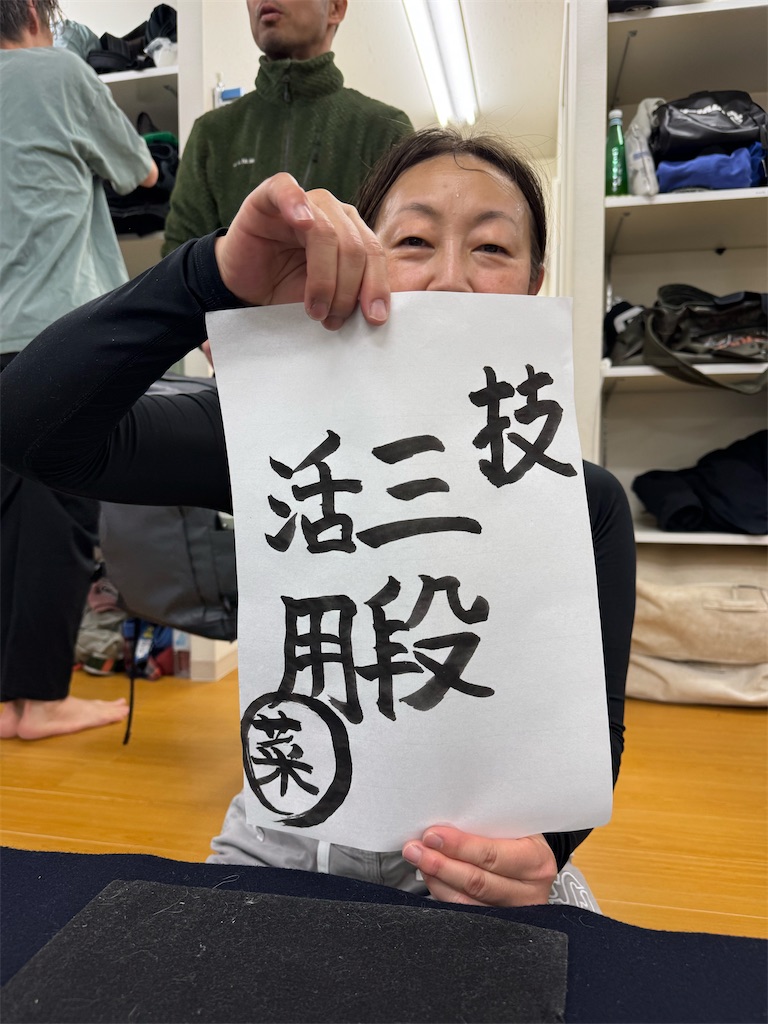 技
三段
活用
菜